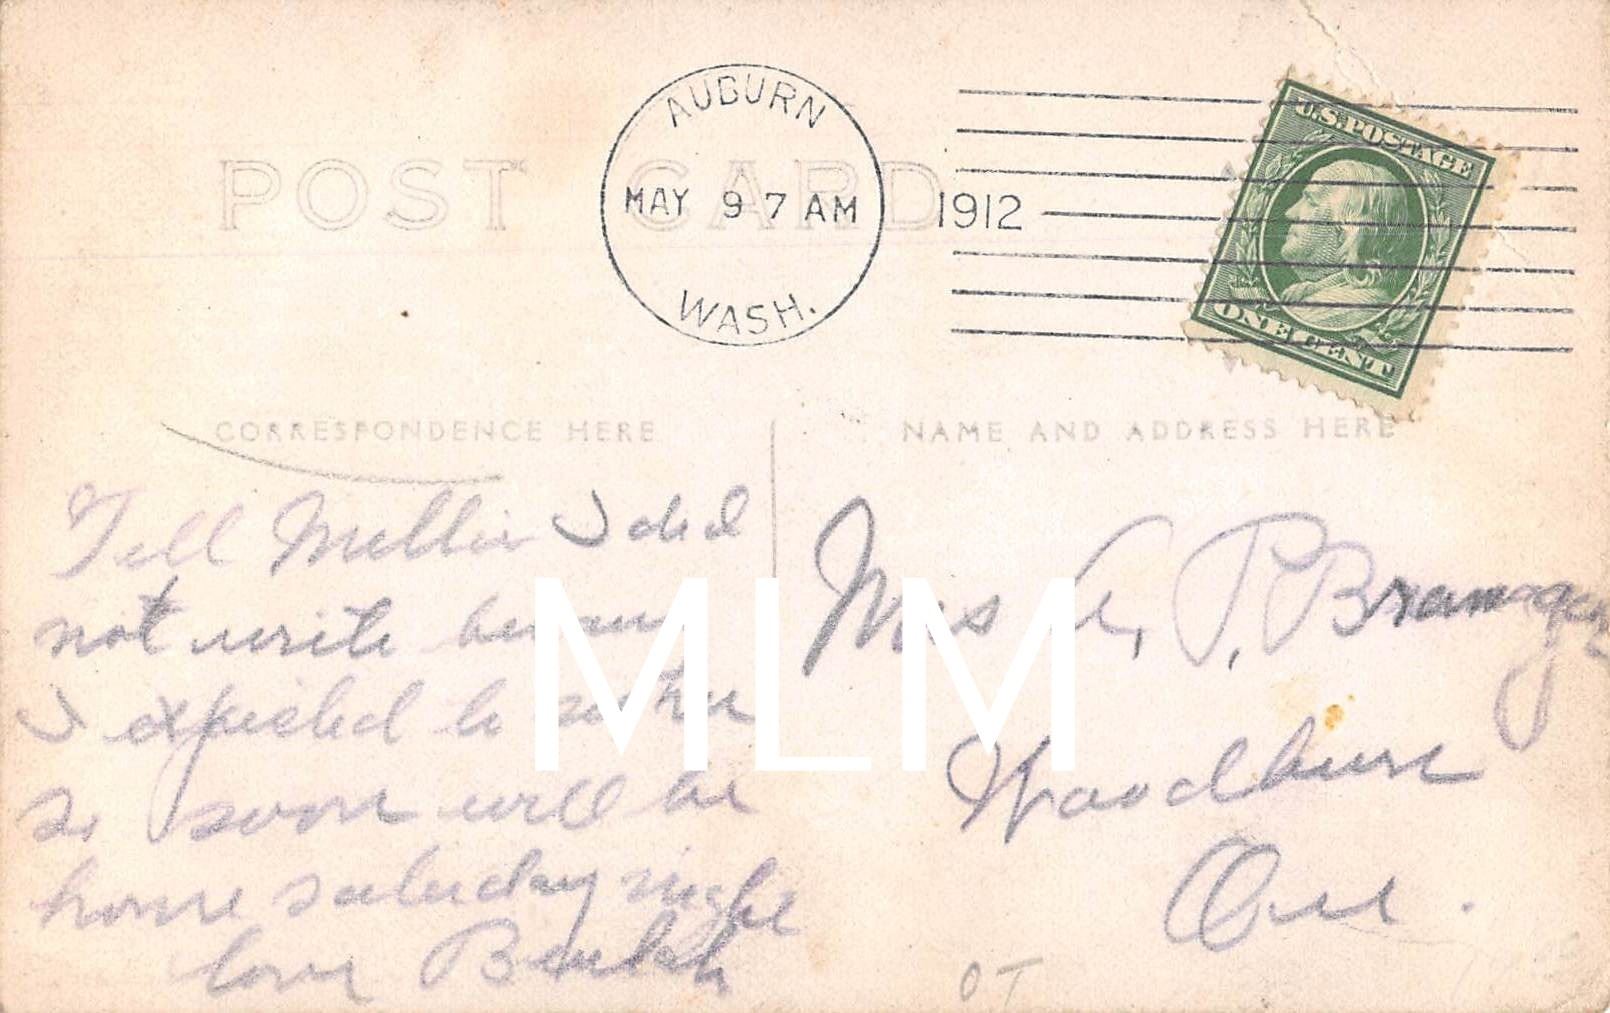 POST CARD
AUBURN
MAY 9 7 AM 1912
WASH.
U.S. POSTAGE
ONE CENT
CORRESPONDENCE HERE
NAME AND ADDRESS HERE
Tell Mellie I did
not write because
I expected to
so soon will be
home saturday night
love Beulah
Mrs P.
Woodburn
Ore.
MLM
OT